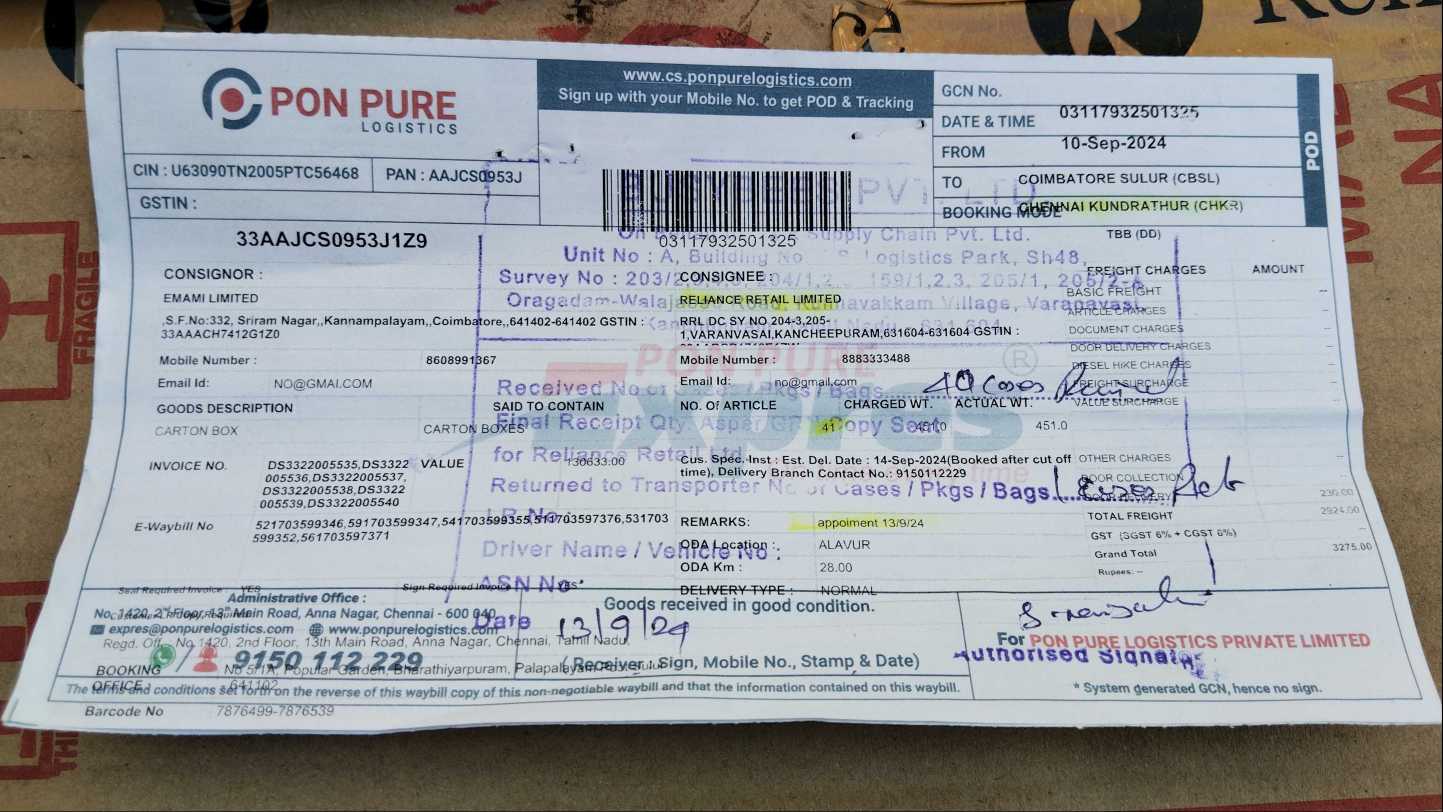 PON PURE
LOGISTICS
www.cs.ponpurelogistics.com
Sign up with your Mobile No. to get POD & Tracking
GCN No.
03117932501325
DATE & TIME
10-Sep-2024
FROM
COIMBATORE SULUR (CBSL)
TO
CHENNAI KUNDRATHUR (CHKR)
BOOKING MODE
TBB (DD)
POD
CIN : U63090TN2005PTC56468
PAN : AAJCS0953J
GSTIN :
33AAJCS0953J1Z9
03117932501325
PVT. LTD
Supply Chain Pvt. Ltd.
Unit No : A, Building No Logistics Park, Sh48,
Survey No : 203/2 204/1,2 159/1,2.3, 205/1, 205/2-A
Oragadam-Walajabad Road, Village, Varanavasi,
CONSIGNOR :
EMAMI LIMITED
,S.F.No:332, Sriram Nagar,,Kannampalayam,,Coimbatore,,641402-641402 GSTIN :
33AAACH7412G1Z0
Mobile Number : 8608991367
Email Id: NO@GMAI.COM
CONSIGNEE:
RELIANCE RETAIL LIMITED
RRL DC SY NO 204-3,205-
1,VARANVASAI,KANCHEEPURAM,631604-631604 GSTIN :
Mobile Number : 8883333488
Email Id: no@gmail.com
PON PURE
Expres
®
FREIGHT CHARGES AMOUNT
BASIC FREIGHT
ARTICLE CHARGES
DOCUMENT CHARGES
DOOR DELIVERY CHARGES
DIESEL HIKE CHARGES
FREIGHT SURCHARGE
VALUE SURCHARGE
OTHER CHARGES
DOOR COLLECTION
230.00
TOTAL FREIGHT 2924.00
GST (SGST 6% + CGST 6%)
Grand Total 3275.00
Rupees: --
Received No of Cases / Pkgs / Bags
40 cases
GOODS DESCRIPTION SAID TO CONTAIN NO. Of ARTICLE CHARGED WT. ACTUAL WT.
CARTON BOX CARTON BOXES 41 451.0 451.0
Final Receipt Qty. Aspar Copy Sent
for Reliance Retail Ltd
Returned to Transporter No of Cases / Pkgs / Bags
1
LR No
Driver Name / Vehicle No :
ASN No
Date 13/9/24
INVOICE NO. DS3322005535,DS3322
005536,DS3322005537,
DS3322005538,DS3322
005539,DS3322005540
VALUE 130633.00
Cus. Spec. Inst : Est. Del. Date : 14-Sep-2024(Booked after cut off
time), Delivery Branch Contact No.: 9150112229
E-Waybill No 521703599346,591703599347,541703599355,511703597376,531703
599352,561703597371
REMARKS: appoiment 13/9/24
ODA Location : ALAVUR
ODA Km : 28.00
DELIVERY TYPE : NORMAL
Seal Required Invoice : YES
Sign Required Invoice YES
Administrative Office :
No. 1420, 2nd Floor, 13th Main Road, Anna Nagar, Chennai - 600 040
expres@ponpurelogistics.com www.ponpurelogistics.com
Regd. Off No 1420, 2nd Floor, 13th Main Road, Anna Nagar, Chennai, Tamil Nadu.
9150 112 229
BOOKING
OFFICE :
No 5/1A, Popular Garden, Bharathiyarpuram, Palapalayam
641102
Goods received in good condition.
(Receiver's Sign, Mobile No., Stamp & Date)
For PON PURE LOGISTICS PRIVATE LIMITED
Authorised Signat
* System generated GCN, hence no sign.
The terms and conditions set forth on the reverse of this waybill copy of this non-negotiable waybill and that the information contained on this waybill.
Barcode No 7876499-7876539
FRAGILE